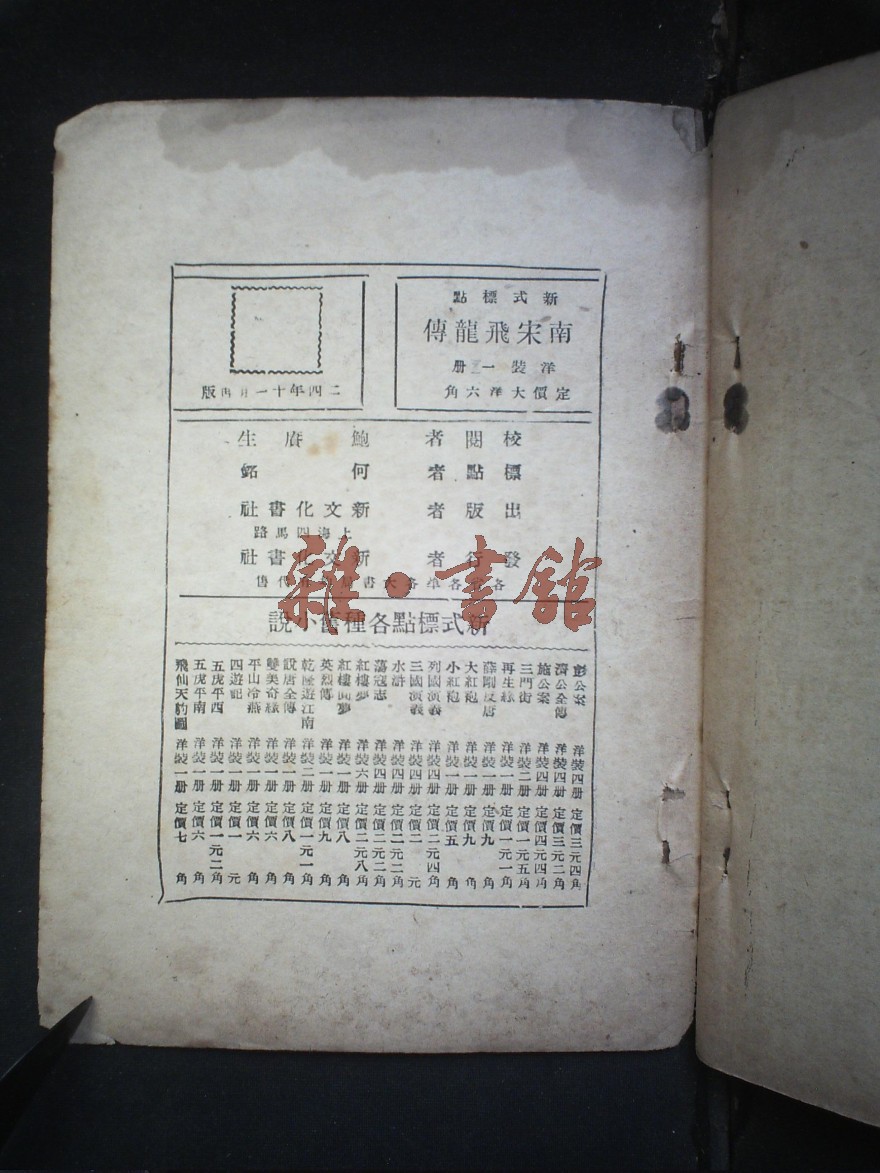 新式標點
南宋飛龍傳
洋裝一册
定價大洋六角
二四年十一月再版
校閱者 鮑賡生
標點者 何銘
出版者 新文化書社
上海四馬路
發行者 新文化書社
各省各埠各大書局均有代售
新式標點各種舊小說
彭公案 洋裝四册 定價三元四角
濟公全傳 洋裝四册 定價三元二角
施公案 洋裝四册 定價四元四角
三門街 洋裝二册 定價一元五角
再生緣 洋裝一册 定價一元一角
薛剛反唐 洋裝一册 定價九角
大紅袍 洋裝一册 定價九角
小紅袍 洋裝一册 定價五角
列國演義 洋裝四册 定價二元四角
三國演義 洋裝四册 定價二元
水滸 洋裝四册 定價二元二角
蕩寇志 洋裝四册 定價二元二角
紅樓夢 洋裝六册 定價二元八角
紅樓圓夢 洋裝一册 定價八角
英烈傳 洋裝一册 定價九角
乾隆遊江南 洋裝二册 定價一元一角
說唐全傳 洋裝一册 定價八角
雙美奇緣 洋裝一册 定價六角
平山冷燕 洋裝一册 定價六角
四遊記 洋裝一册 定價一元
五虎平西 洋裝一册 定價一元二角
五虎平南 洋裝一册 定價六角
飛仙天豹圖 洋裝一册 定價七角
雜·書館